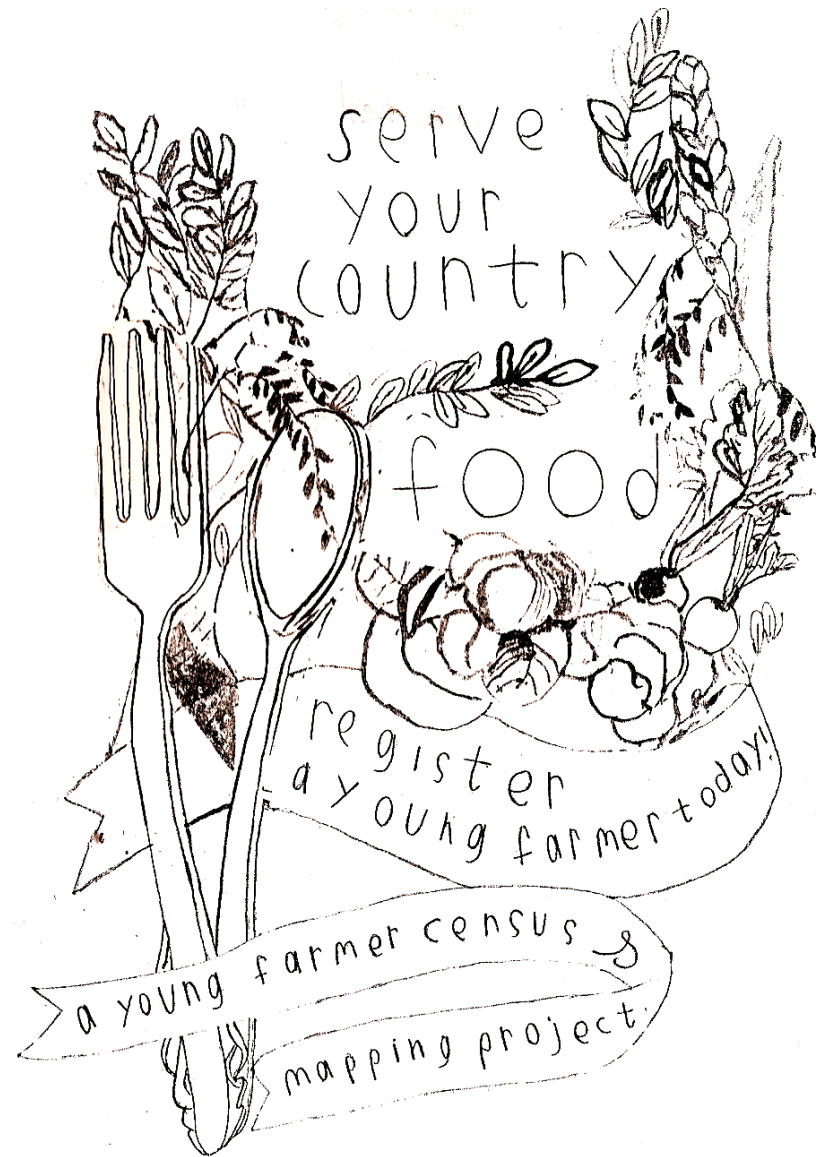 serve
your
country
food
register
a young farmer today!
a young farmer census &
mapping project.